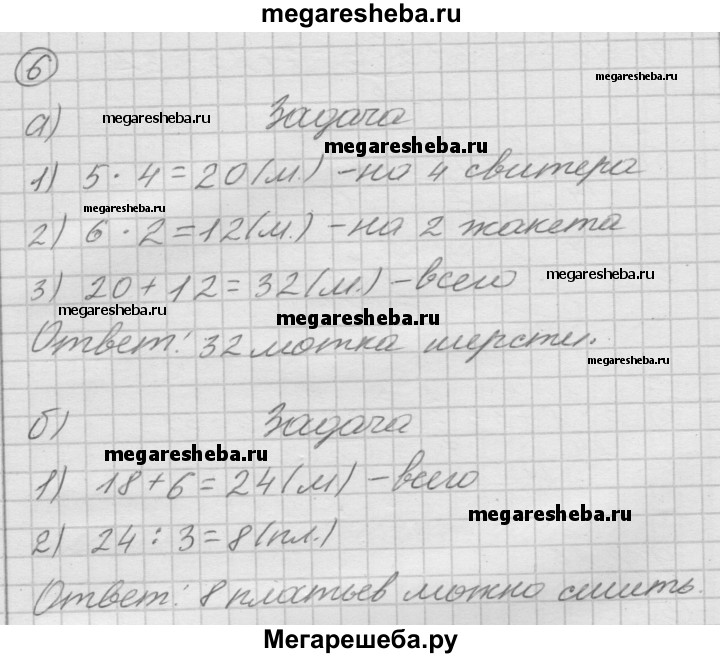 megaresheba.ru
6
megaresheba.ru
а) megaresheba.ru Задача
megaresheba.ru
1) 5 · 4 = 20 (м.) – на 4 свитера
megaresheba.ru
2) 6 · 2 = 12 (м.) – на 2 жакета
3) 20 + 12 = 32 (м.) – всего megaresheba.ru
megaresheba.ru megaresheba.ru
Ответ: 32 мотка шерсти.
megaresheba.ru
б) Задача
megaresheba.ru
1) 18 + 6 = 24 (м) – всего
megaresheba.ru
2) 24 : 3 = 8 (пл.)
Ответ: 8 платьев можно сшить.
Мегарешеба.ру